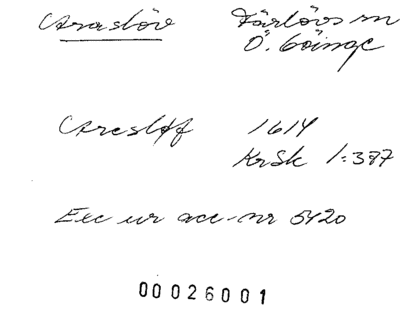 Araslöv Färlövs sn
Ö. Göinge
Areslöff 1614
KrSk 1:387
Exc ur acc-nr 5420
00026001